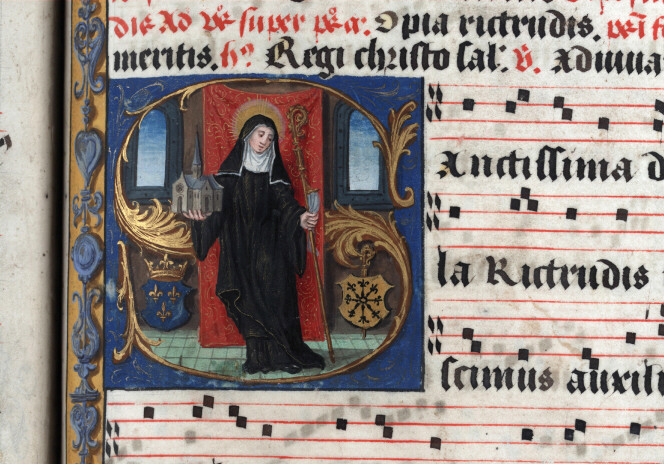 die Ad vr̃ super pr̃a: O pia rictrudis. p̃cẽ f
meritis. hỹ Regi christo sal: v̄. Adiuua
Sanctissima d
la Rictrudis
scimus auxili